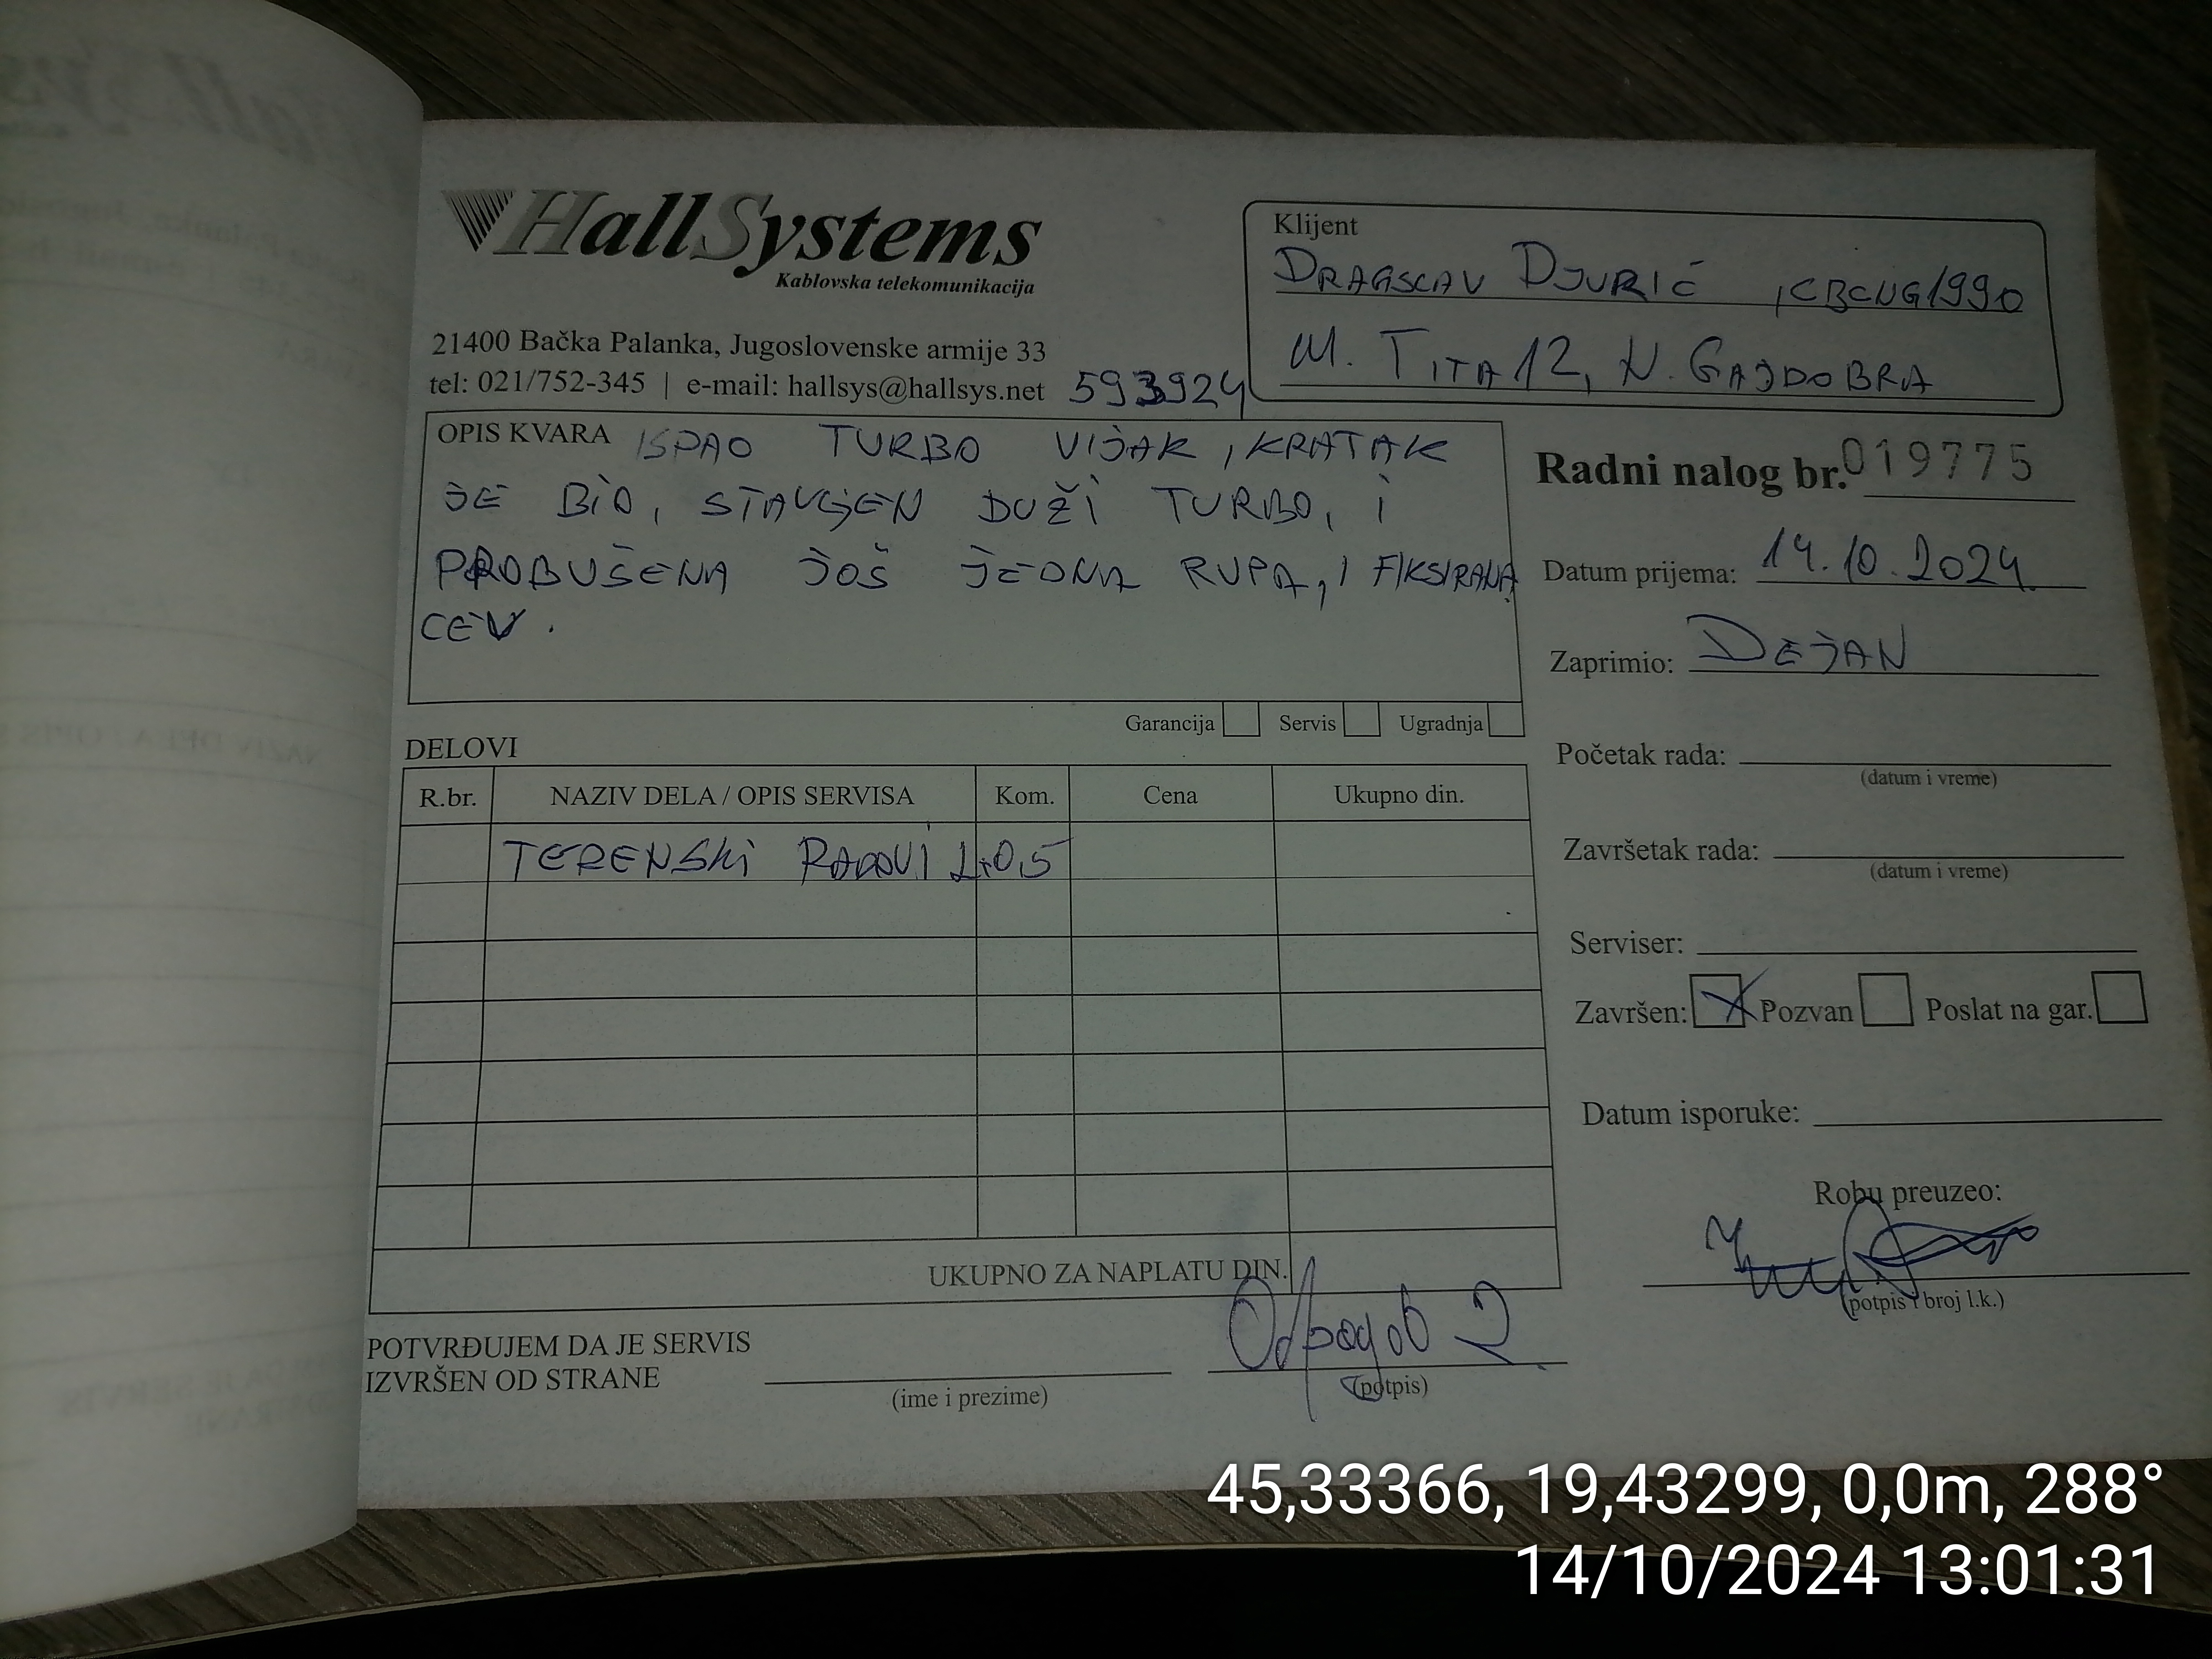 HallSystems
Kablovska telekomunikacija
21400 Bačka Palanka, Jugoslovenske armije 33
tel: 021/752-345 | e-mail: hallsys@hallsys.net 593924
Klijent
DRAGSLAV DJURIĆ
M. TITA 12, N. GAJDOBRA
OPIS KVARA ISPAO TURBO VIJAK, KRATAK
JE BIO, STAVLJEN DUŽI TURBO, I
PROBUŠENA JOŠ JEDNA RUPA, I FIKSIRANA
CEV.
Garancija Servis Ugradnja
Radni nalog br. 019775
Datum prijema: 14.10.2024.
Zaprimio: DEJAN
Početak rada:
(datum i vreme)
Završetak rada:
(datum i vreme)
Serviser:
Završen: X Pozvan Poslat na gar.
Datum isporuke:
Robu preuzeo:
(potpis i broj l.k.)
DELOVI
R.br. NAZIV DELA / OPIS SERVISA Kom. Cena Ukupno din.
TERENSKI RADOVI
UKUPNO ZA NAPLATU DIN.
POTVRĐUJEM DA JE SERVIS
IZVRŠEN OD STRANE
(ime i prezime)
(potpis)
45,33366, 19,43299, 0,0m, 288°
14/10/2024 13:01:31